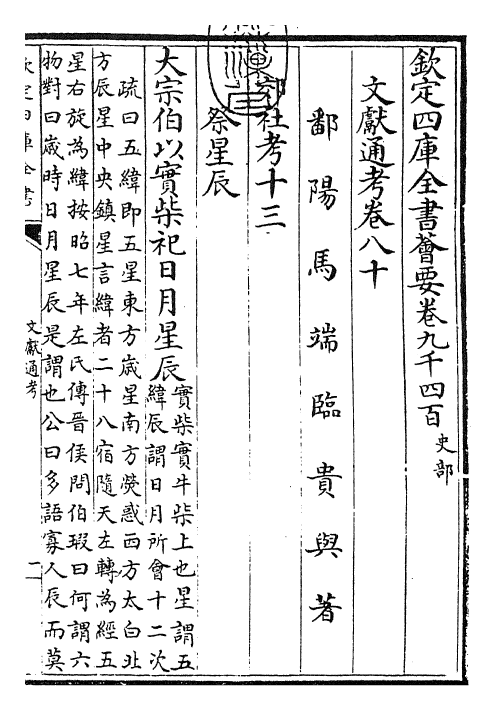 欽定四庫全書薈要卷九千四百史部
文獻通考卷八十
鄱陽馬端臨貴與著
郊社考十三
祭星辰
大宗伯以實柴祀日月星辰實柴實牛柴上也星謂五
緯辰謂日月所會十二次
疏曰五緯即五星東方歲星南方熒惑西方太白北
方辰星中央鎮星言緯者二十八宿隨天左轉為經五
星右旋為緯按昭七年左氏傳晉侯問伯瑕曰何謂六
物對曰歲時日月星辰是謂也公曰多語寡人辰而莫
欽定四庫全書
文獻通考